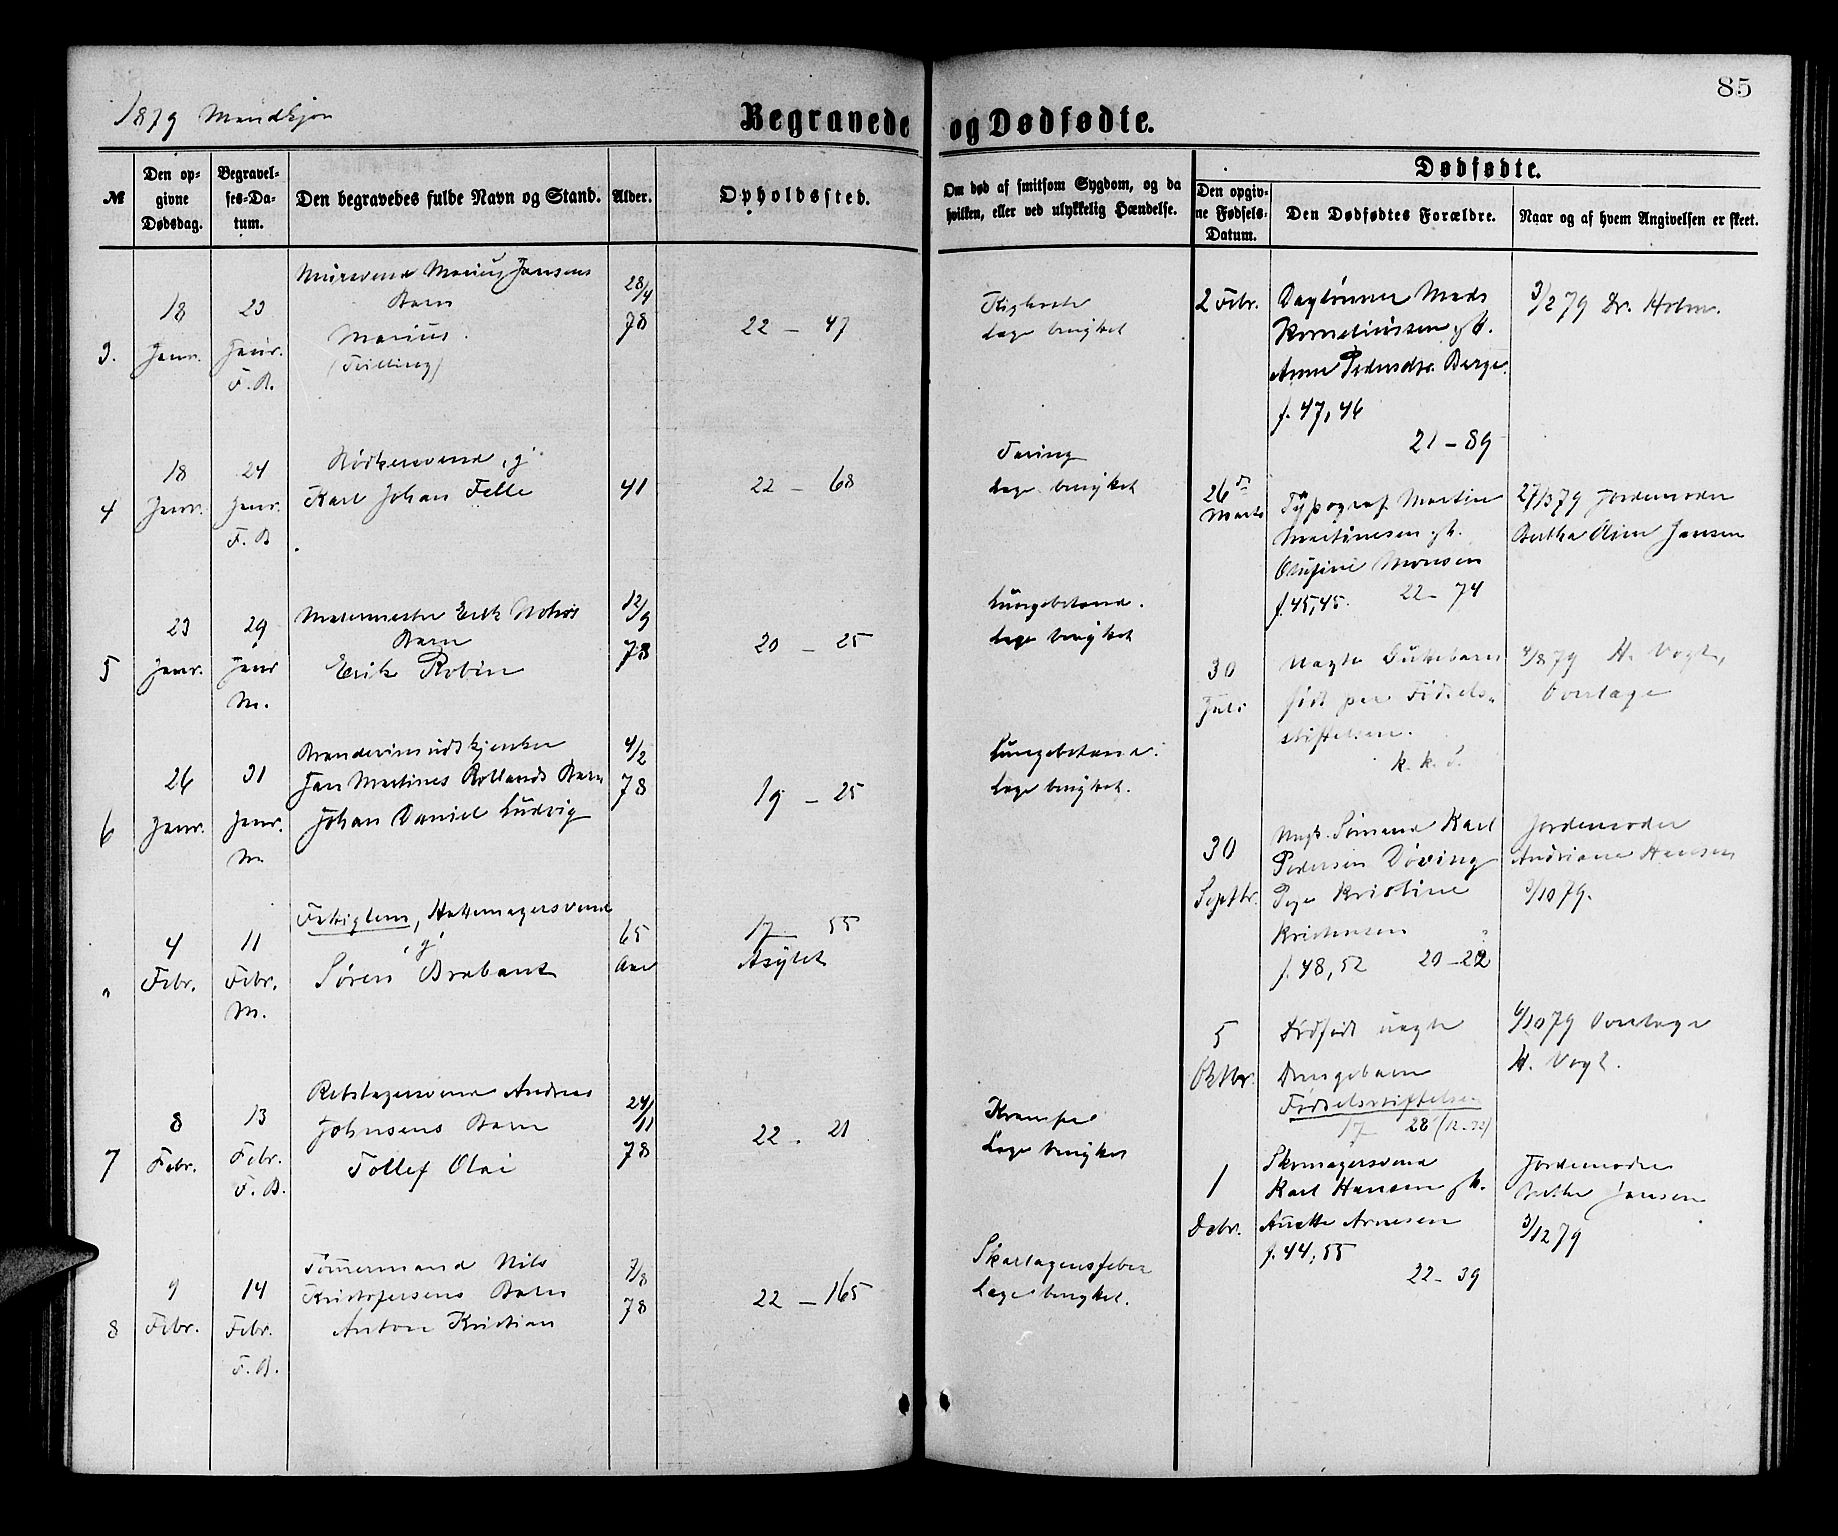 85
1879 Mandkjøn
Begravede og Dødfødte.
№
Den opgivne Dødsdag.
Begravelses-Datum.
Den begravedes fulde Navn og Stand.
Alder.
Opholdssted.
Om død af smitsom Sygdom, og da hvilken, eller ved ulykkelig Hændelse.
Dødfødte.
Den opgivne Fødsels-Datum.
Den Dødfødtes Forældre.
Naar og af hvem Angivelsen er skeet.
3.
18 Janr.
23 Janr. F. B.
Murersvend Marius Jansens
Barn
Marius.
(Tvilling)
28/4 78
22 – 47
Kighoste
Læge benyttet
4
18 Janr.
24 Janr. F. B
Bødkersvend, g.
Karl Johan Felle
41
22 – 68
Tæring
Læge benyttet
5
23 Janr.
29 Janr M.
Malermester Erik
Barn
Erik Robin
12/9 78
20 – 25
Lungebetænd.
Læge benyttet
6
26 Janr.
31 Janr. M
Brændevinsudskjenker
Jan Martines Rollands Barn
Johan Daniel Ludvig
4/2 78
19 – 25
Lungebetænd.
Læge benyttet.
"
4 Febr.
11 Febr. M.
Fattiglem, Hattemagersvend
g
Søren Brabant
65 Aar
17 55
Asylet
7
8 Febr.
13 Febr. F. B.
Rebslagersvend Andreas
Johnsens Barn
Tollef Olai
24/11 78
22 . 21
Krampe
Læge benyttet
8
9 Febr.
14 Febr. F. B.
Tømmermand Nils
Kristofersens Barn
Anton Kristian
7/8 78
22 – 165
Skarlagensfeber
Læge benyttet.
2 Febr.
Daglønner Mads
Korneliussen og h.
Anne Pedersdtr. Berge.
f. 47, 46
21 – 89
3/2 79 Dr. Holm.
26de Marts
Typograf Martin
Martinesen og h.
Olufine Monsen
f. 45, 45. 22 – 74
27/3 79 Jordemoder
Bertha Oline Jansen
30 Juli
Uægte Guttebarn
født paa Fødsels-
stiftelsen.
4/8 79 H. Vogt,
Overlæge
30 Septbr.
Ungk. Sømand Karl
Pedersen Døving
Pige Kristine
Kristensen
f. 48, 52 20 – 22
Jordemoder
Andriane Hansen
3/10 79.
5 Oktbr.
Dødfødt uægte
Drengebarn
Fødselsstiftelsen
17 28
6/10 79 Overlæge
H. Vogt.
1 Debr.
Skomagersvend
Karl Hansen og h.
Anette Arnesen
f. 44, 55
22 – 39
Jordemoder
Jansen
3/12 79